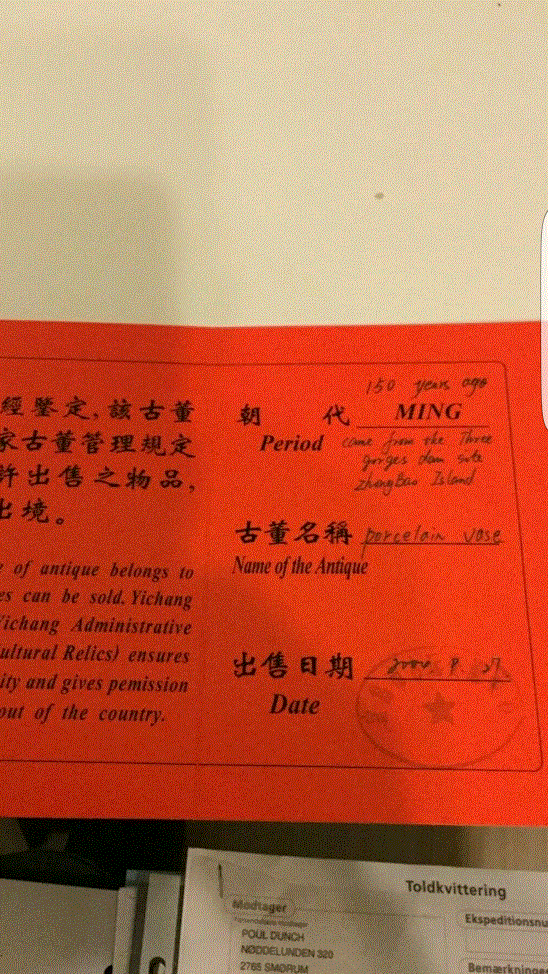 經鑒定,該古董
家古董管理規定
許出售之物品,
出境。
e of antique belongs to
es can be sold. Yichang
Yichang Administrative
Cultural Relics) ensures
ity and gives pemission
out of the country.
150 years ago
朝 代 MING
Period came from the Three
gorges dam site
zhongBao Island
古董名稱 porcelain vase
Name of the Antique
出售日期
Date
Toldkvittering
Modtager
Ekspeditionsnu
POUL DUNCH
NØDDELUNDEN 320
2765 SMØRUM
Bemærkning